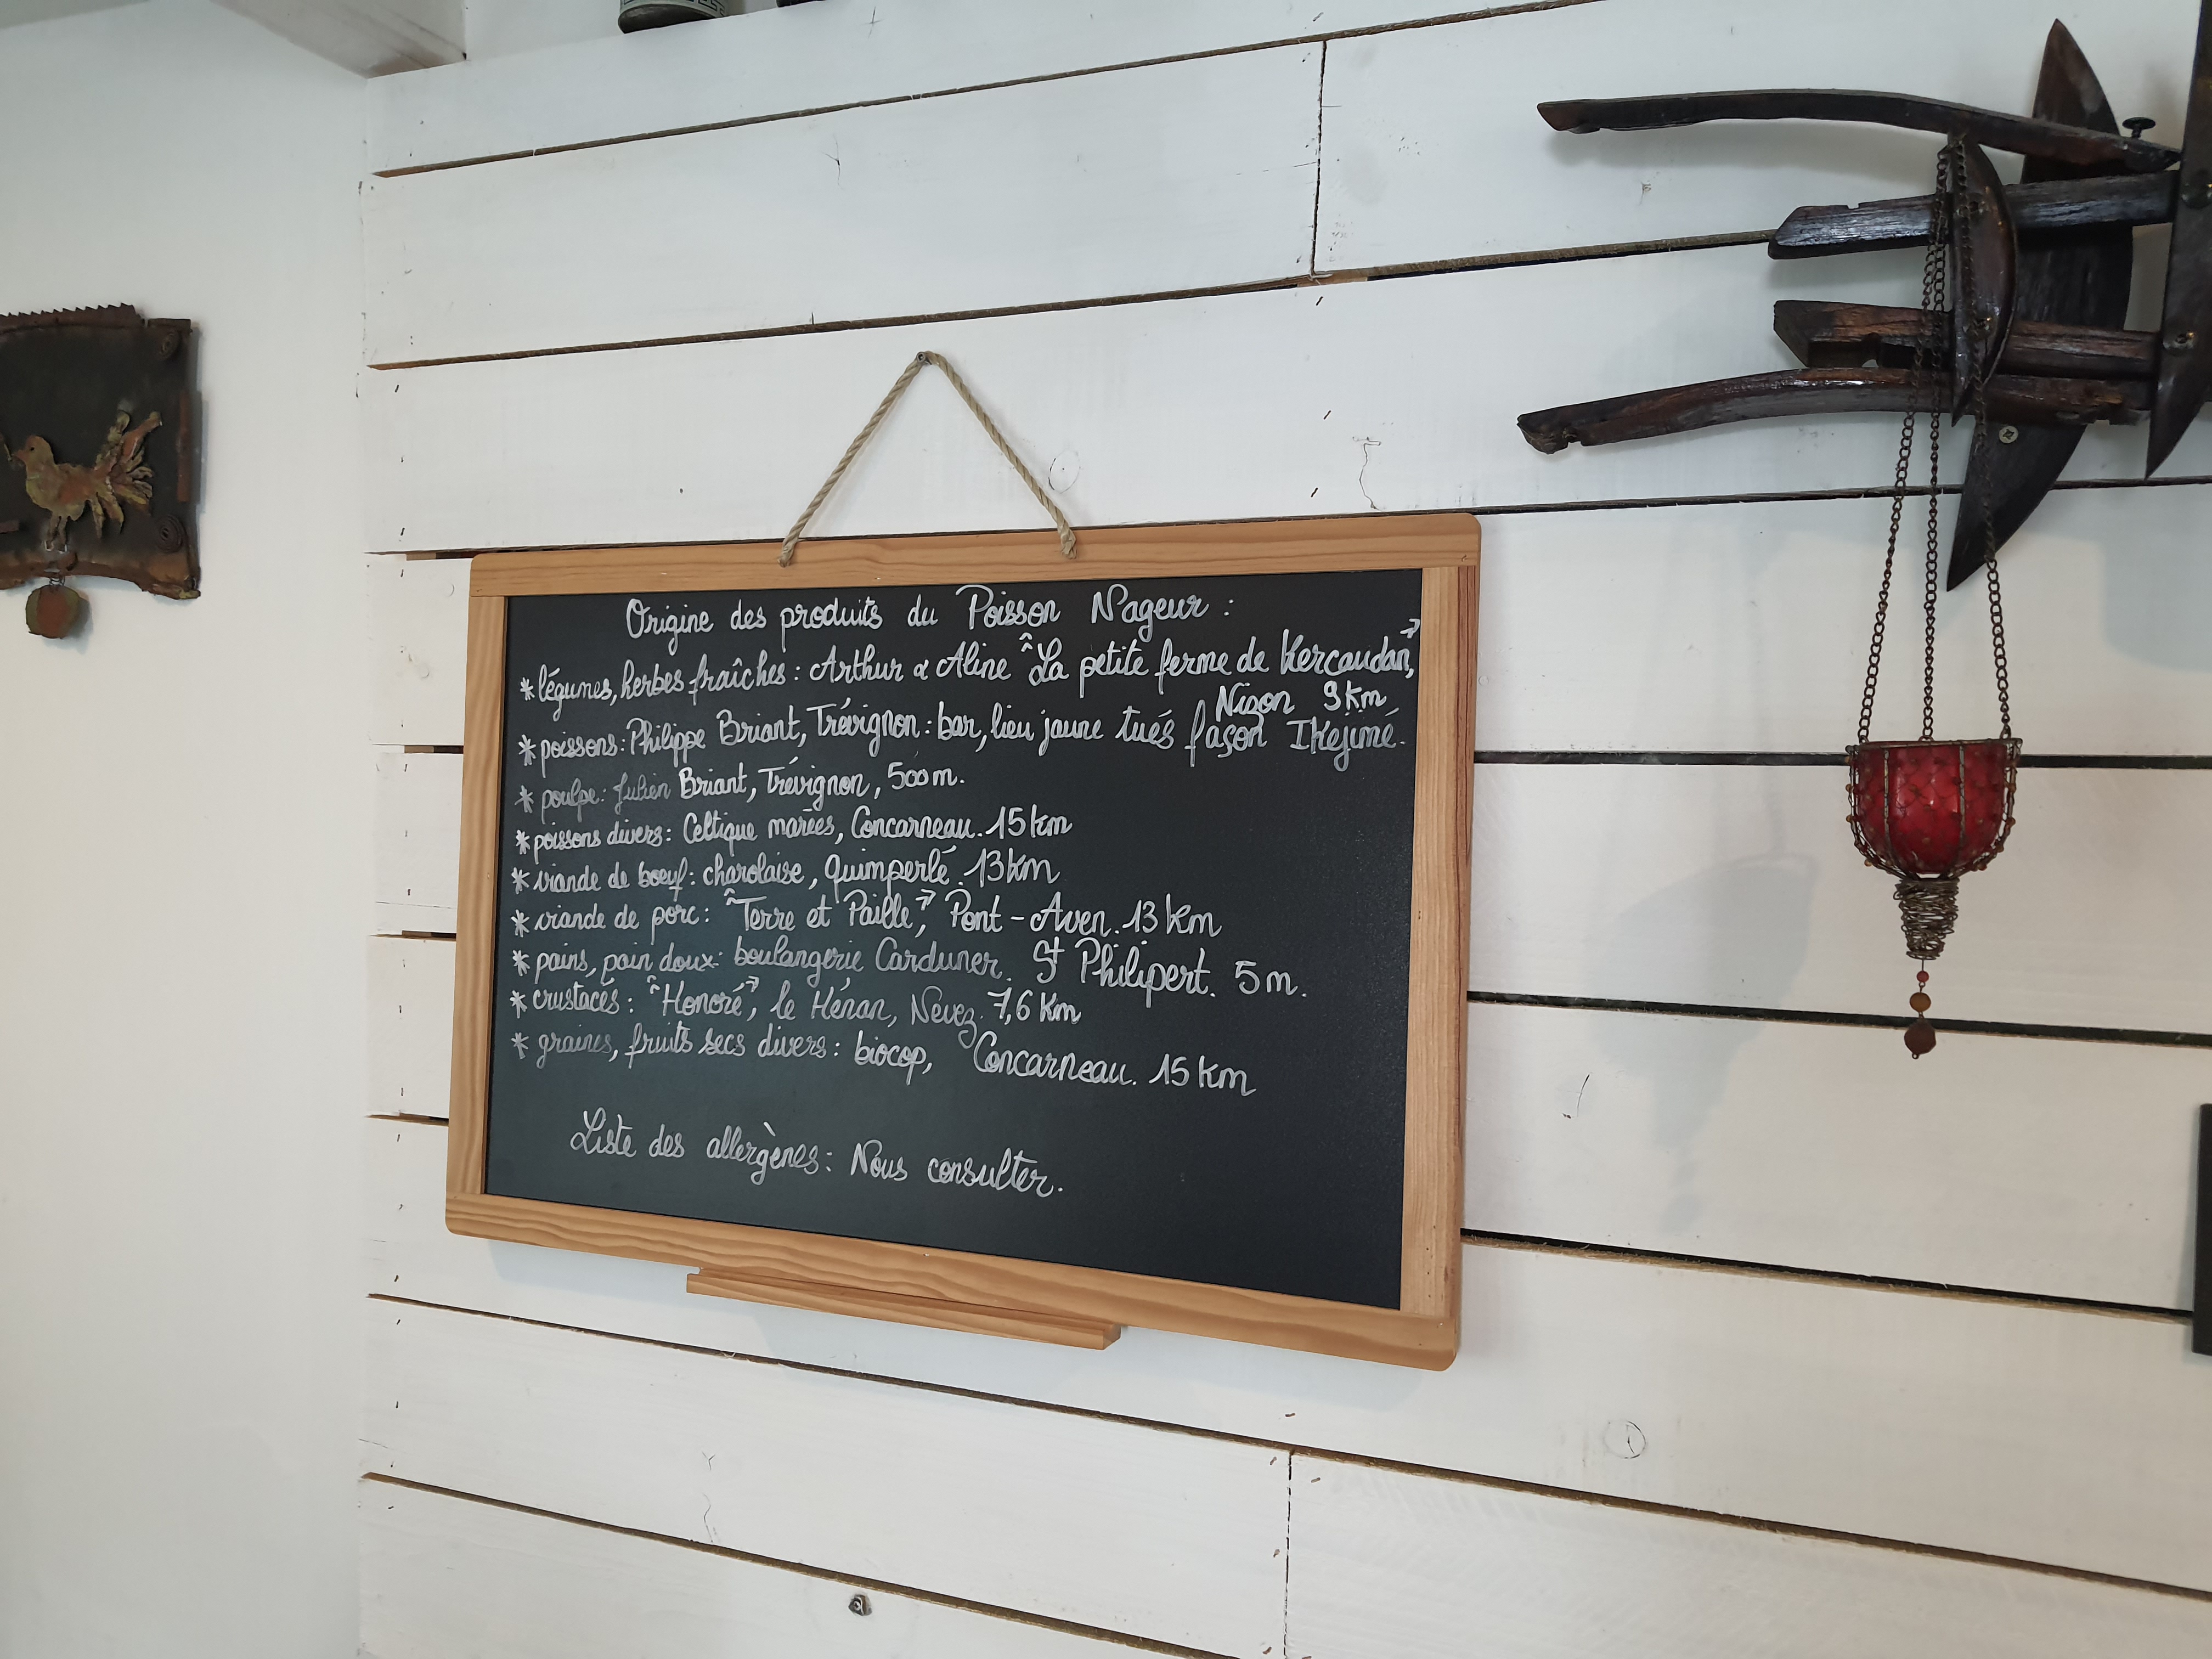 Origine des produits du Poisson Nageur :
* légumes, herbes fraîches : Arthur & Aline "La petite ferme de Kercaudan",
Nizon 9 km
* poissons : Philippe Briant, Trévignon : bar, lieu jaune tués façon Ikejimé.
* poulpe : Julien Briant, Trévignon, 500 m.
* poissons divers : Celtique marées, Concarneau. 15 km
* viande de boeuf : charolaise, Quimperlé. 13 km
* viande de porc : "Terre et Paille", Pont-Aven. 13 km
* pains, pain doux : boulangerie Carduner. St Philipert. 5 m.
* crustacés : "Honoré", le Hénan, Nevez. 7,6 Km
* graines, fruits secs divers : biocop, Concarneau. 15 km
Liste des allergènes : Nous consulter.